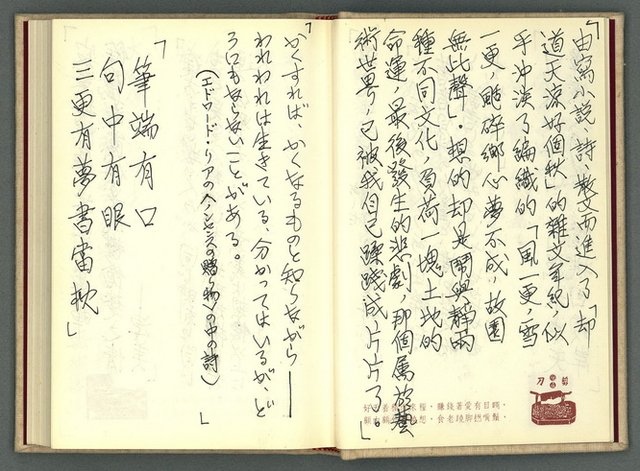 「由寫小說、詩、散文而進入了「却
道天涼好個秋」的雜文年紀，似
乎沖淡了編織的「風一更，雪
一更，聒碎鄉心夢不成，故園
無此聲」。想的却是鬧與靜兩
種不同文化，負荷一塊土地的
命運，最後發生的悲劇，那個屬於藝
術世界，已被我自己蹂踐成片片了。」
剪刀
「かくすれば、かくなるものと知りながら——
われわれは生きている、分かってはいるが、ど
うにもならないことがある。
（エドロード・リアのヘンセンスの贈り物の中の詩）」
「筆端有口
句中有眼
三更有夢書當枕」